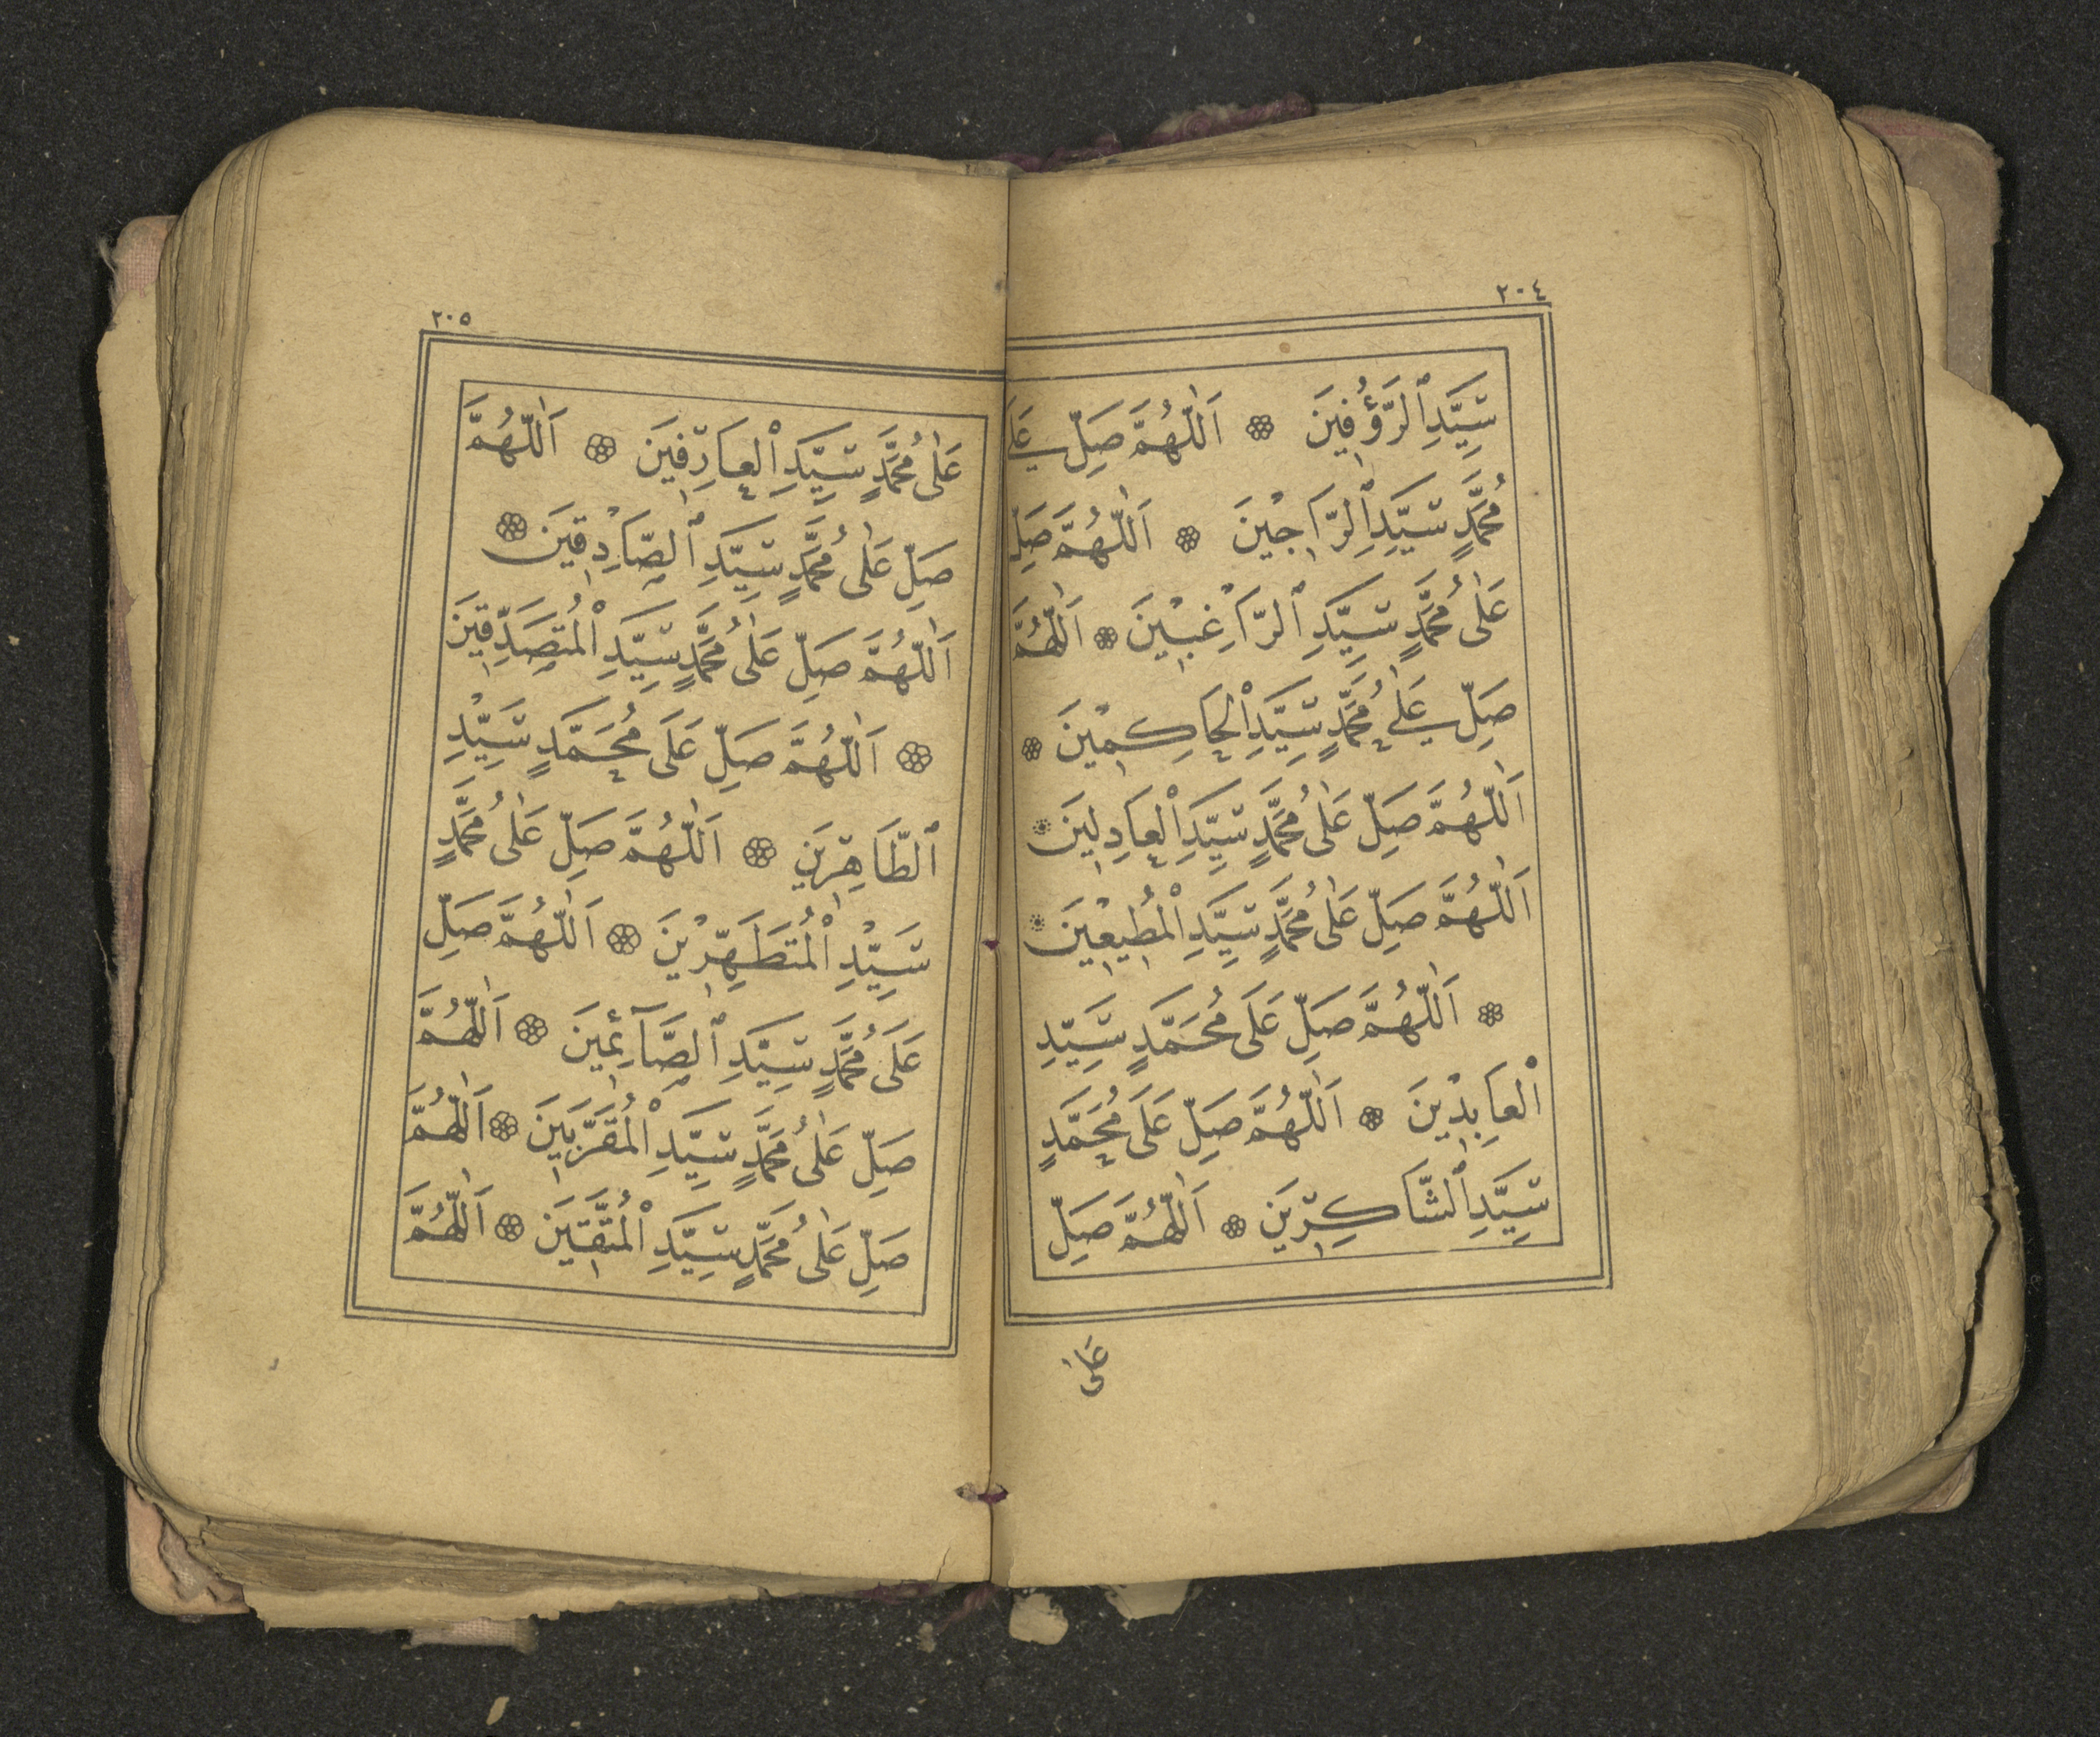 ٢٠٤
سَيِّدِ ٱلرَّؤُفِينَ ۞ اَللّٰهُمَّ صَلِّ عَلٰى
مُحَمَّدٍ سَيِّدِ ٱلرَّاجِيْنَ ۞ اَللّٰهُمَّ صَلِّ
عَلٰى مُحَمَّدٍ سَيِّدِ ٱلرَّاغِبِيْنَ ۞ اَللّٰهُمَّ
صَلِّ عَلٰى مُحَمَّدٍ سَيِّدِ ٱلْحَاكِمِيْنَ ۞
اَللّٰهُمَّ صَلِّ عَلٰى مُحَمَّدٍ سَيِّدِ ٱلْعَادِلِيْنَ ۞
اَللّٰهُمَّ صَلِّ عَلٰى مُحَمَّدٍ سَيِّدِ ٱلْمُطِيْعِيْنَ ۞
۞ اَللّٰهُمَّ صَلِّ عَلَى مُحَمَّدٍ سَيِّدِ
ٱلْعَابِدِيْنَ ۞ اَللّٰهُمَّ صَلِّ عَلَى مُحَمَّدٍ
سَيِّدِ ٱلشَّاكِرِيْنَ ۞ اَللّٰهُمَّ صَلِّ
عَلٰى
٢٠٥
عَلٰى مُحَمَّدٍ سَيِّدِ ٱلْعَارِفِيْنَ ۞ اَللّٰهُمَّ
صَلِّ عَلٰى مُحَمَّدٍ سَيِّدِ ٱلصَّادِقِيْنَ ۞
اَللّٰهُمَّ صَلِّ عَلٰى مُحَمَّدٍ سَيِّدِ ٱلْمُتَصَدِّقِيْنَ
۞ اَللّٰهُمَّ صَلِّ عَلَى مُحَمَّدٍ سَيِّدِ
ٱلطَّاهِرِيْنَ ۞ اَللّٰهُمَّ صَلِّ عَلٰى مُحَمَّدٍ
سَيِّدِ ٱلْمُتَطَهِّرِيْنَ ۞ اَللّٰهُمَّ صَلِّ
عَلَى مُحَمَّدٍ سَيِّدِ ٱلصَّآئِمِيْنَ ۞ اَللّٰهُمَّ
صَلِّ عَلٰى مُحَمَّدٍ سَيِّدِ ٱلْمُقَرَّبِيْنَ ۞ اَللّٰهُمَّ
صَلِّ عَلٰى مُحَمَّدٍ سَيِّدِ ٱلْمُتَّقِيْنَ ۞ اَللّٰهُمَّ